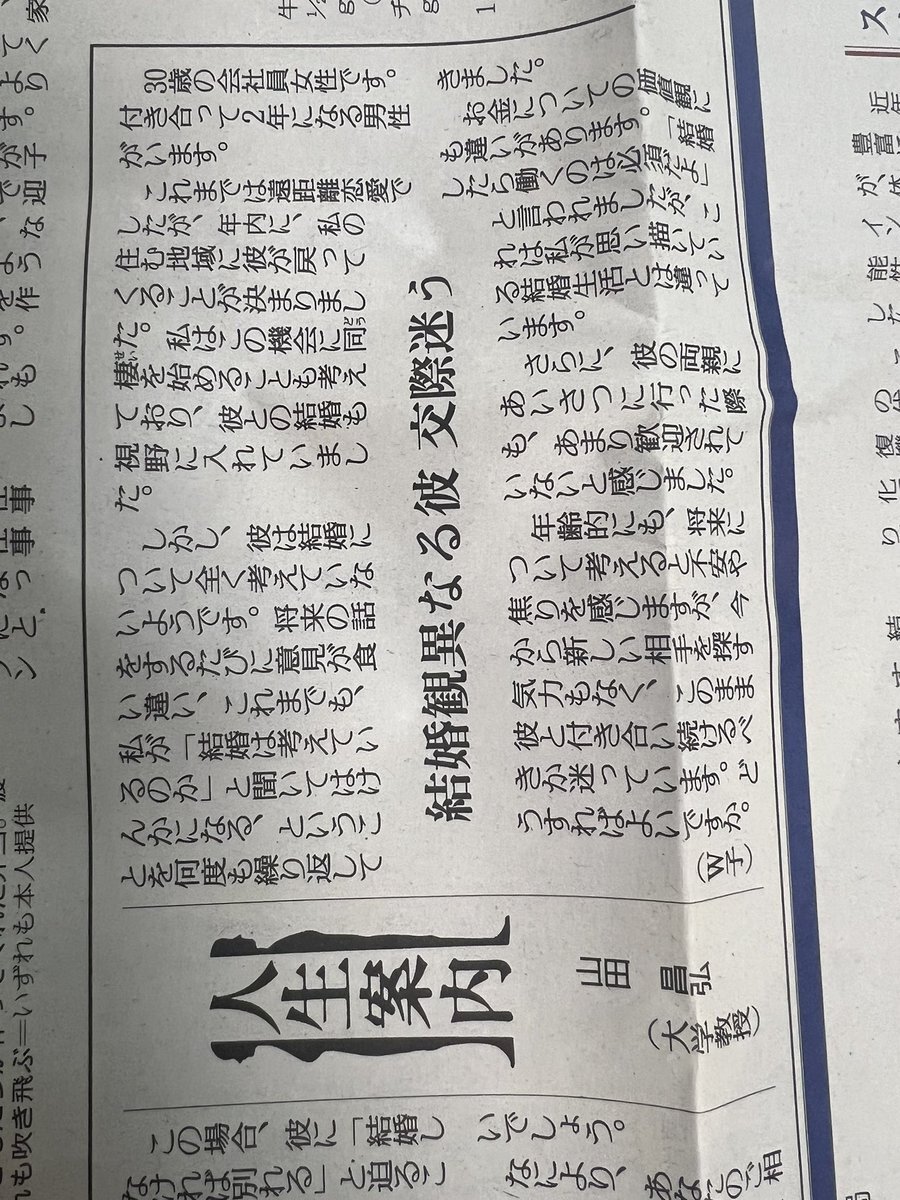 結婚観異なる彼 交際迷う
30歳の会社員女性です。
付き合って2年になる男性
がいます。
これまでは遠距離恋愛で
したが、年内に、私の
住む地域に彼が戻って
くることが決まりまし
た。私はこの機会に同
棲を始めることも考え
ており、彼との結婚も
視野に入れていまし
た。
しかし、彼は結婚に
ついて全く考えていな
いようです。将来の話
をするたびに意見が食
い違い、これまでも、
私が「結婚は考えてい
るのか」と聞いてはけ
んかになる、というこ
とを何度も繰り返して
きました。
お金についての価値観に
も違いがあります。「結婚
したら働くのは必須だよ」
と言われましたが、こ
れは私が思い描いてい
る結婚生活とは違って
います。
さらに、彼の両親に
あいさつに行った際
も、あまり歓迎されて
いないと感じました。
年齢的にも、将来に
ついて考えると不安や
焦りを感じますが、今
から新しい相手を探す
気力もなく、このまま
彼と付き合い続けるべ
きか迷っています。ど
うすればよいですか。
(W子)
人生案内
山田 昌弘
(大学教授)
この場合、彼に「結婚し
なければ別れる」と迫るこ
いでしょう。
なにより、
れも吹き飛ぶ＝いずれも本人提供